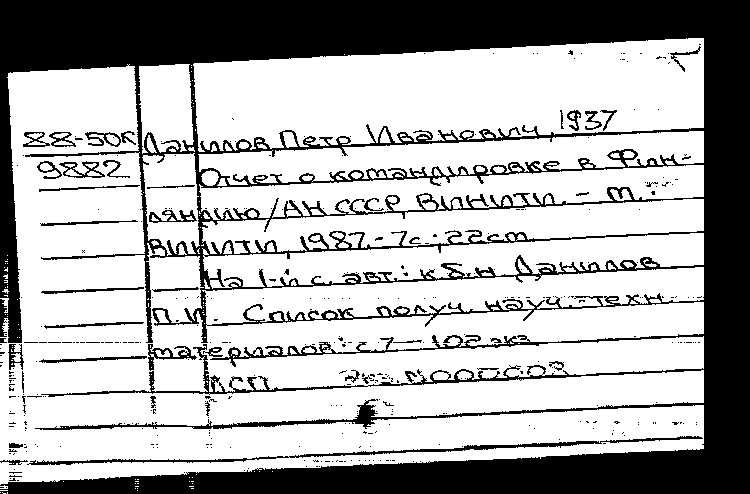 88-50к Данилов, Петр Иванович, 1937
9882 Отчет о командировке в Фин-
ляндию/АН СССР, ВИНИТИ. - М.:
ВИНИТИ, 1987.- 7с.; 22см.
На 1-й с. авт.: к.б.н Данилов
П.И. Список получ. науч.-техн.
материалов: с.7 - 102 экз
ДСП. Экз. N000008